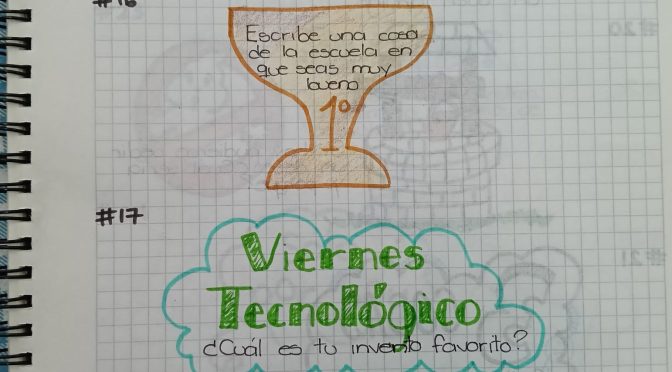 #16
Escribe una cosa
de la escuela en
que seas muy
bueno
1°
#17
Viernes
Tecnológico
¿Cuál es tu invento favorito?
#20
#21